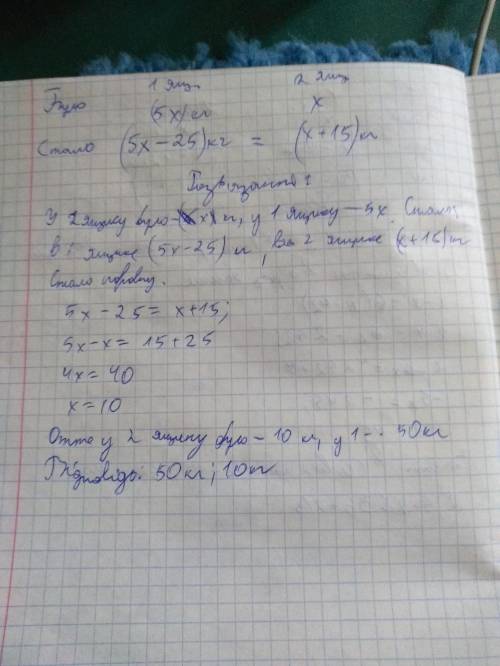 1 ящ. 2 ящ.
Було (5x) кг x
Стало (5x-25) кг = (x+15) кг
Розв'язання:
У 2 ящику було - (x) кг, у 1 ящику - 5x. Стало
в 1 ящике (5x-25) кг, в 2 ящике (x+15) кг
Стало поровну.
5x - 25 = x+15;
5x-x = 15+25
4x = 40
x = 10
Отже у 2 ящику було - 10 кг, у 1 - 50кг
Відповідь: 50кг; 10кг